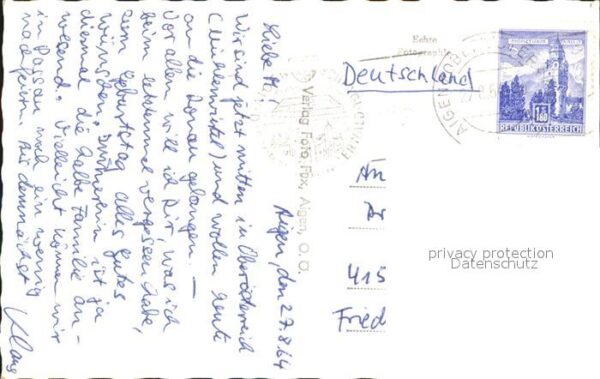 Aigen, den 27.8.64
Liebe
Wir sind jetzt mitten in Oberösterreich
(Mühlviertel) und wollen heute
an die Donau gelangen. –
Vor allem will ich Dir, was ich
beim letztenmal vergessen habe,
zum Geburtstag alles Gutes
wünschen. Immerhin ist ja
diesmal die halbe Familie an-
wesend. Vielleicht können wir
in Passau noch ein wenig
nachfeiern. Bis demnächst
Klaus
Echte
Fotographie
Verlag Foto Fox, Aigen, O.Ö.
Deutschland
An
415
Fried
1.80
REPUBLIK ÖSTERREICH
AIGEN
privacy protection
Datenschutz